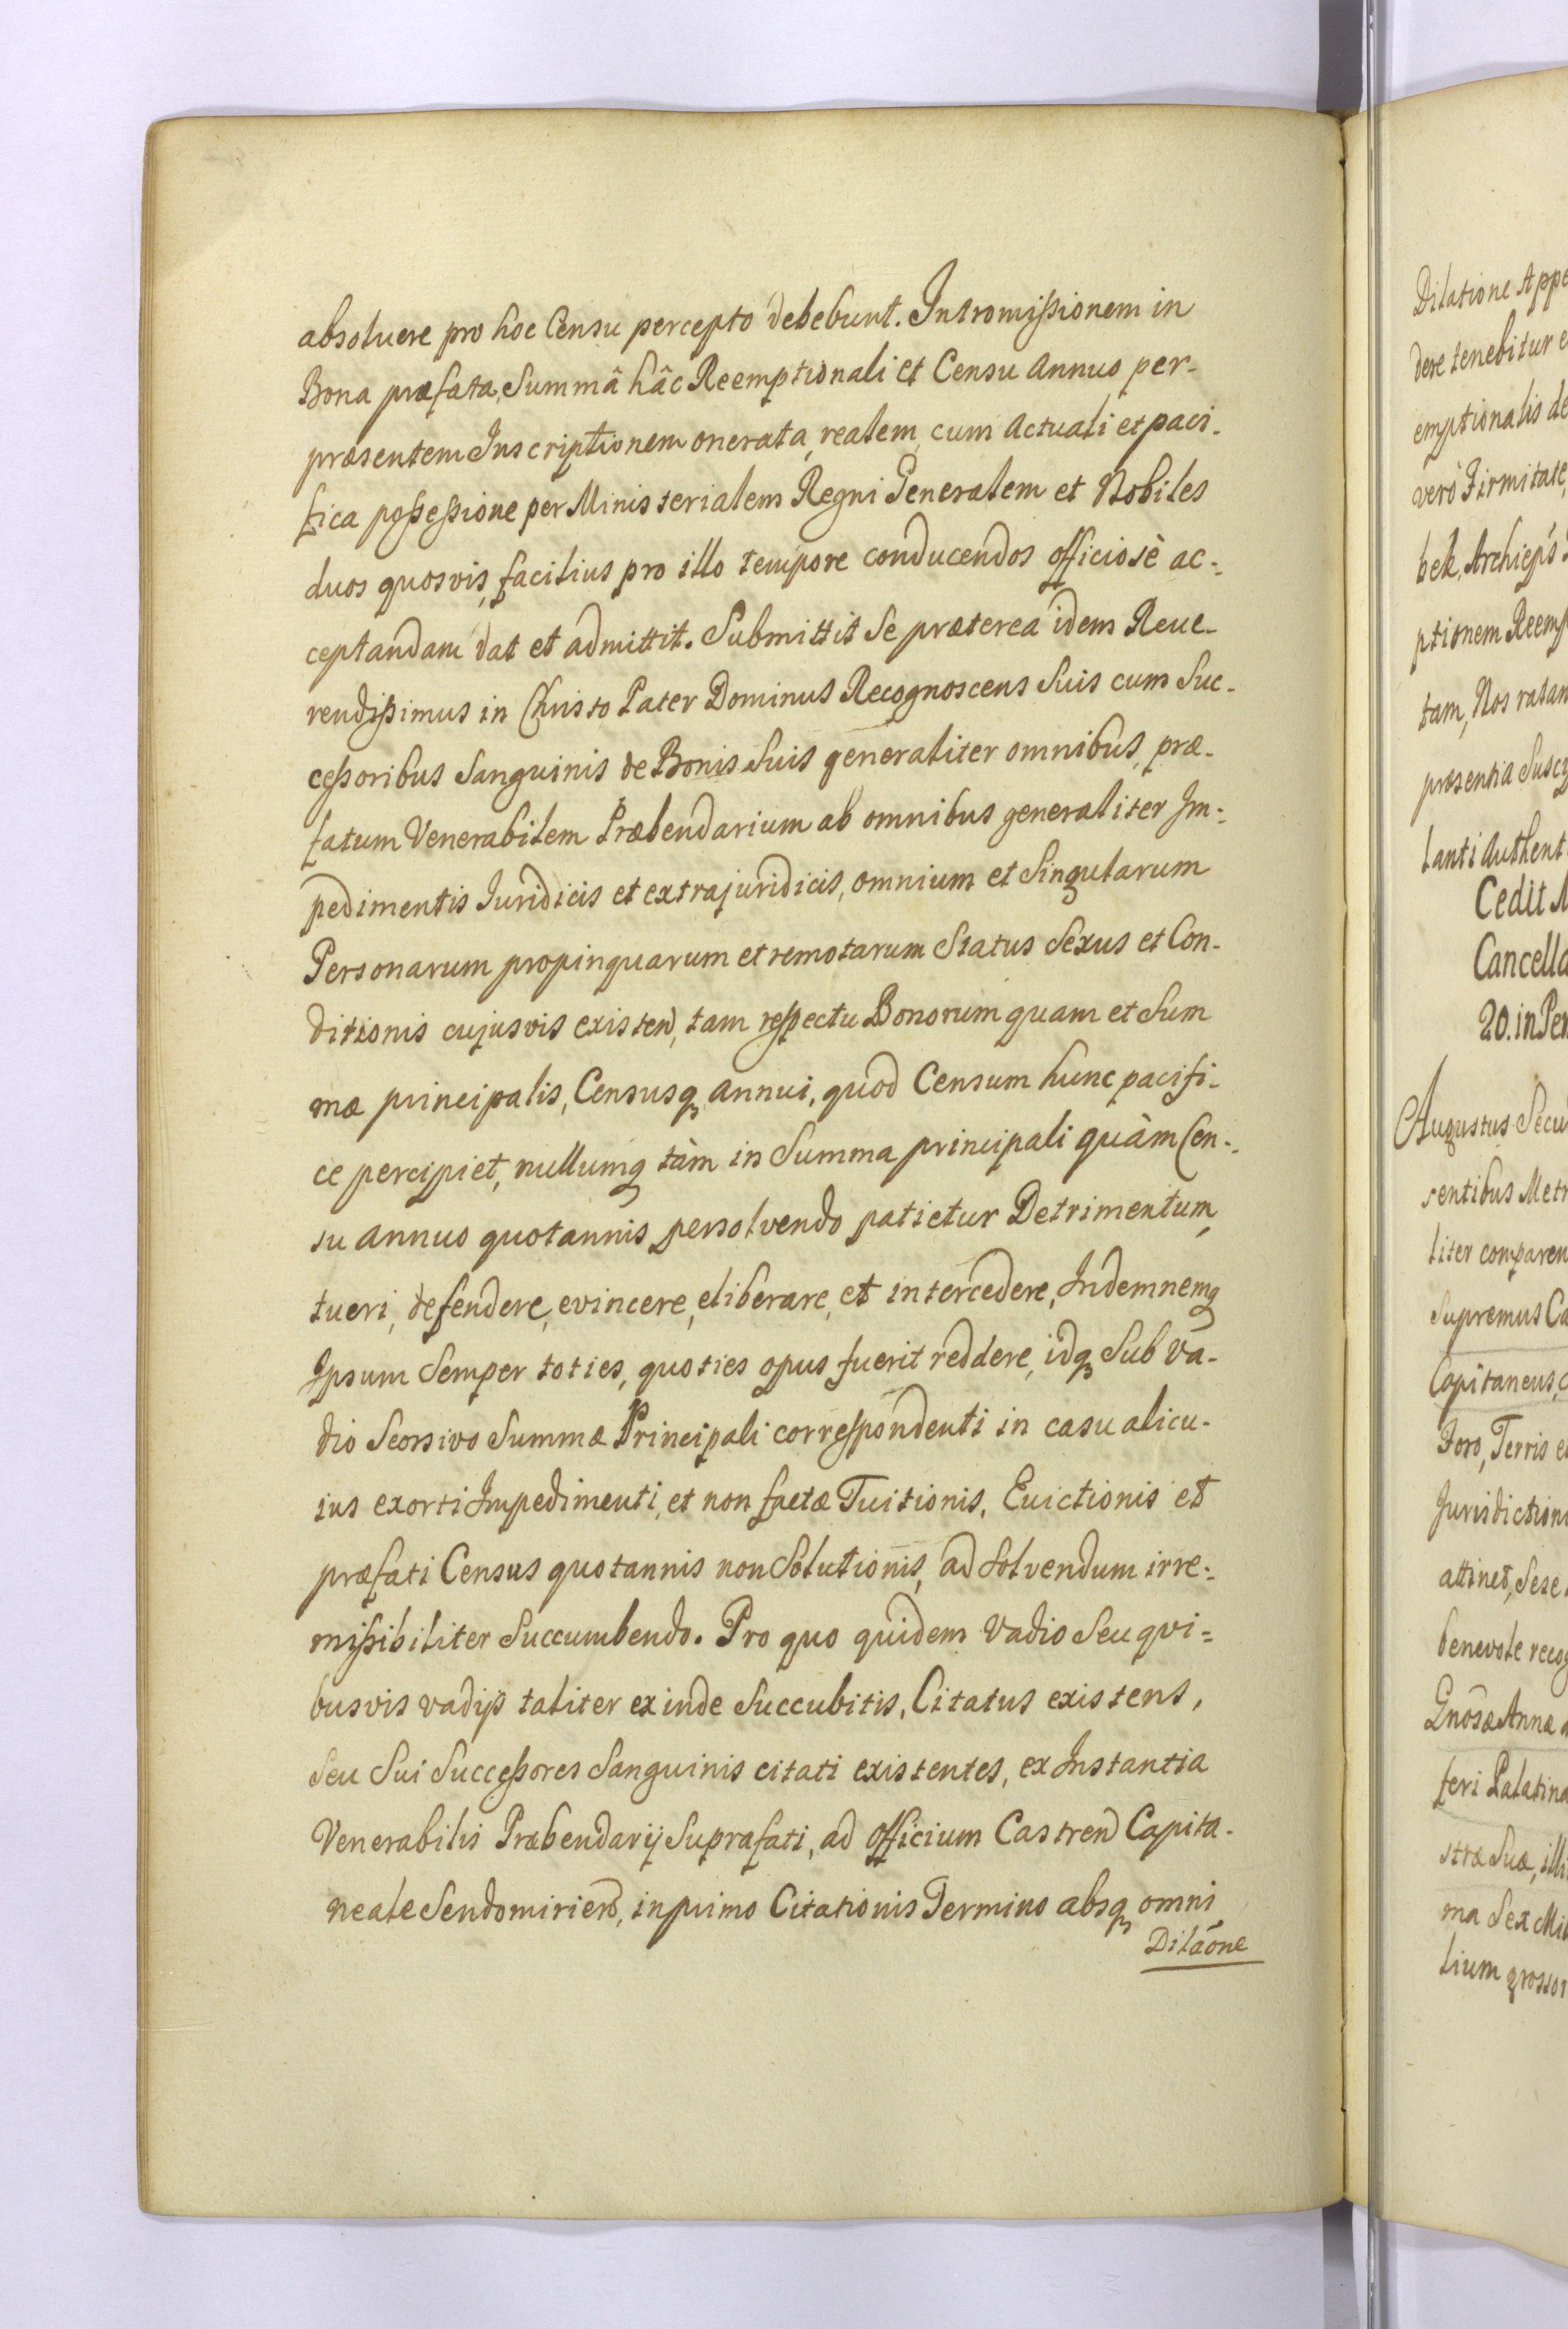 absoluere pro hoc Censu percepto debebunt. Intromißionem in
Bona præfata, Summâ hâc Reemptionali et Censu annuo per-
præsentem Inscriptionem onerata, realem, cum actuali et paci-
fica poßeßione per Ministerialem Regni Generalem et Nobiles
duos quosvis, facilius pro illo tempore conducendos officiosè ac-
ceptandam dat et admittit. Submittit se præterea idem Reue-
rendißimus in Christo Pater Dominus Recognoscens suis cum Suc-
ceßoribus Sanguinis de Bonis Suis generaliter omnibus, præ-
fatum Venerabilem Præbendarium ab omnibus generaliter Im-
pedimentis Iuridicis et extrajuridicis, omnium et Singularum
Personarum propinquarum et remotarum Status Sexus et Con-
ditionis cujusvis existen, tam respectu Bonorum quam et Sum
mæ principalis, Censusq annui, quod Censum hunc pacifi-
ce percipiet, nullumq tàm in Summa principali quàm Cen-
su annuo quotannis persolvendo patietur Detrimentum,
tueri, defendere, evincere, eliberare, et intercedere, Indemnemq
Ipsum Semper toties, quoties opus fuerit reddere, idq Sub Va-
dio Seorsivo Summæ Principali correspondenti in casu alicu-
ius exorti Impedimenti, et non factæ Tuitionis, Euictionis et
præfati Census quotannis non Solutionis, ad Solvendum irre-
mißibiliter Succumbendo. Pro quo quidem Vadio Seu qvi=
busvis vadijs taliter exinde Succubitis, Citatus existens,
Seu Sui Succeßores Sanguinis citati existentes, ex Instantia
Venerabilis Præbendarij Suprafati, ad Officium Castren Capita-
neale Sendomirien, in primo Citationis Termino absq omni
Dilaõne
Dilatione
dere tenebitur
emptionalis
verò Firmitate,
bek, Archiep's
ptionem
tam, Nos
præsentia
lanti
Cedit
Cancella
20. in
Augustus
sentibus
liter
Supremus
Capitaneus,
Foro, Terris
attinet, Sese
benevole
Gnõsæ Annæ
feri
stræ Suæ,
ma Sex
lium